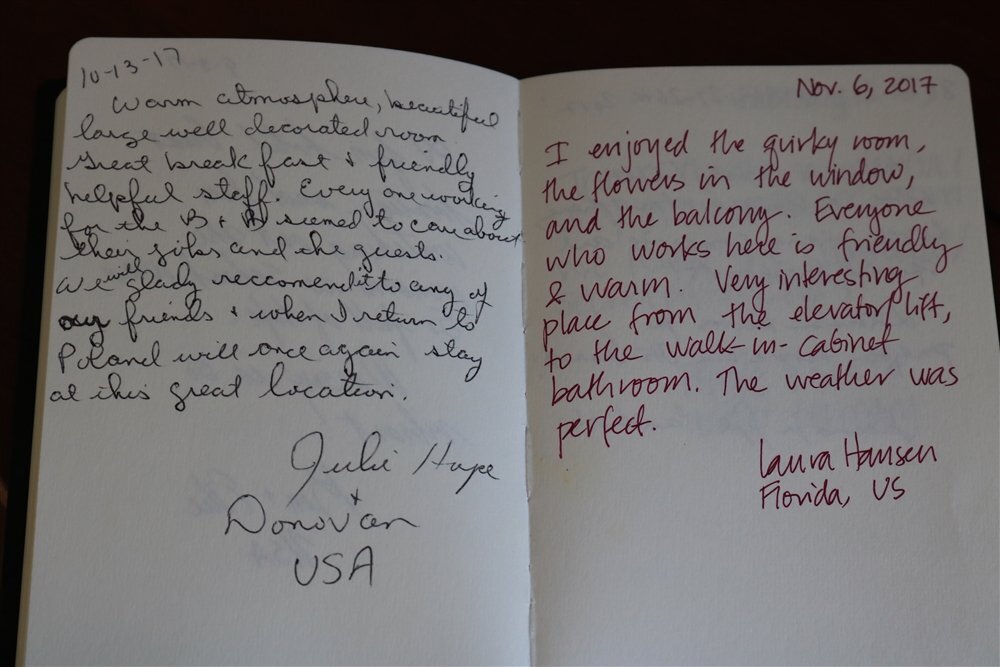 10-13-17
Warm atmosphere, beautiful
large well decorated room
Great break fast & friendly
helpful staff. Every one working
for the B & B seemed to care about
their jobs and the guests.
We will glady reccomend it to any of
my friends & when I return to
Poland will once again stay
at this great location.
Julie Hope
+
Donovan
USA
Nov. 6, 2017
I enjoyed the quirky room,
the flowers in the window,
and the balcony. Everyone
who works here is friendly
& warm. Very interesting
place from the elevator/lift,
to the walk-in-cabinet
bathroom. The weather was
perfect.
Laura Hansen
Florida, US